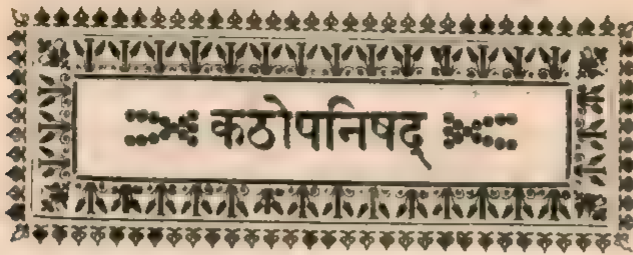 कठोपनिषद्